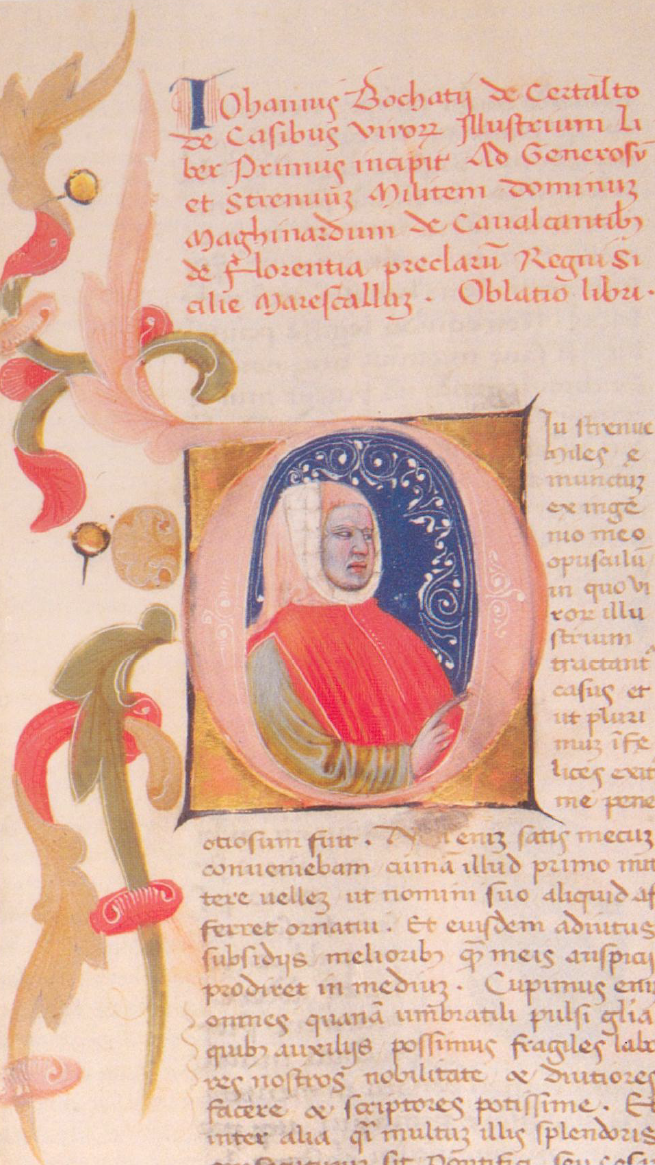 Iohannis Bochatij de Certalto
de Casibus viroꝝ Illustrium Li
ber Primus incipit Ad Generosū
et Strenuuꝫ Militem dominuꝫ
Maghinardum de Caualcantibꝫ
de Florentia preclarū Regni Si
cilie Marescalluꝫ . Oblatio libri .
Diu strenue
miles e
munctuꝫ
ex inge
nio meo
opusculū
in quo vi
roꝝ illu
strium
tractant
casus et
ut pluri
muꝫ īfe
lices exit
me pene
otiosum fuit . eniꝫ satis mecuꝫ
conueniebam illud primo mit
tere uelleꝫ ut nomini suo aliquid af
ferret ornatui . Et eiusdem adiutus
subsidijs melioribꝫ q̄ meis auspicij
prodiret in mediuꝫ . Cupimus eni
omnes umbratili pulsi glīa
quibꝫ auxilijs possimus fragiles labo
res nostros nobilitate & diutiores
facere & scriptores potissime . Et
inter alia multuꝫ illis splendoris
sit